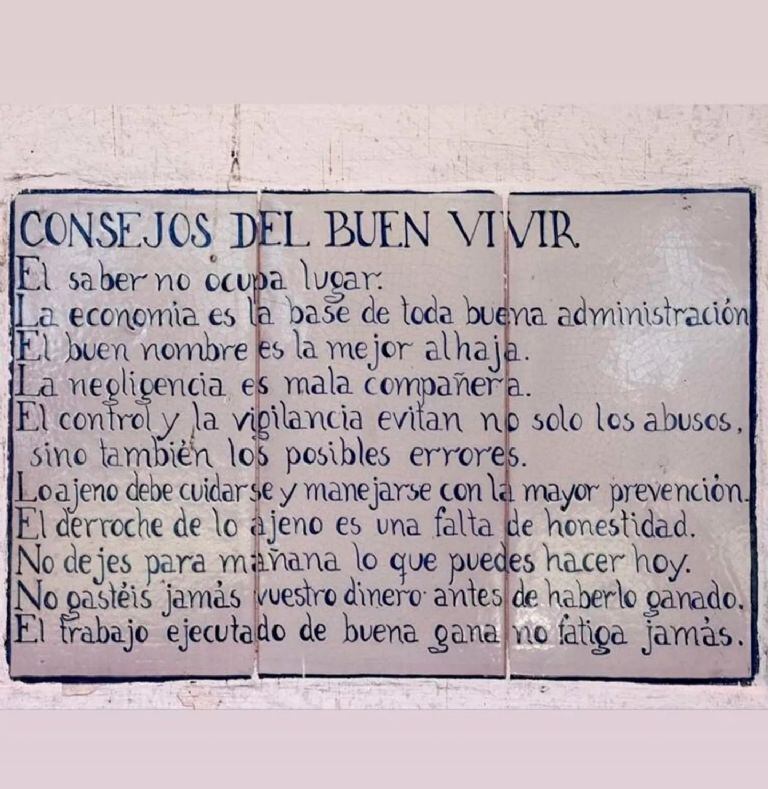 CONSEJOS DEL BUEN VIVIR
El saber no ocupa lugar.
La economia es la base de toda buena administración
El buen nombre es la mejor alhaja.
La negligencia es mala compañera.
El control y la vigilancia evitan no solo los abusos,
sino también los posibles errores.
Lo ajeno debe cuidarse y manejarse con la mayor prevención.
El derroche de lo ajeno es una falta de honestidad.
No dejes para mañana lo que puedes hacer hoy.
No gastéis jamás vuestro dinero antes de haberlo ganado.
El trabajo ejecutado de buena gana no fatiga jamás.